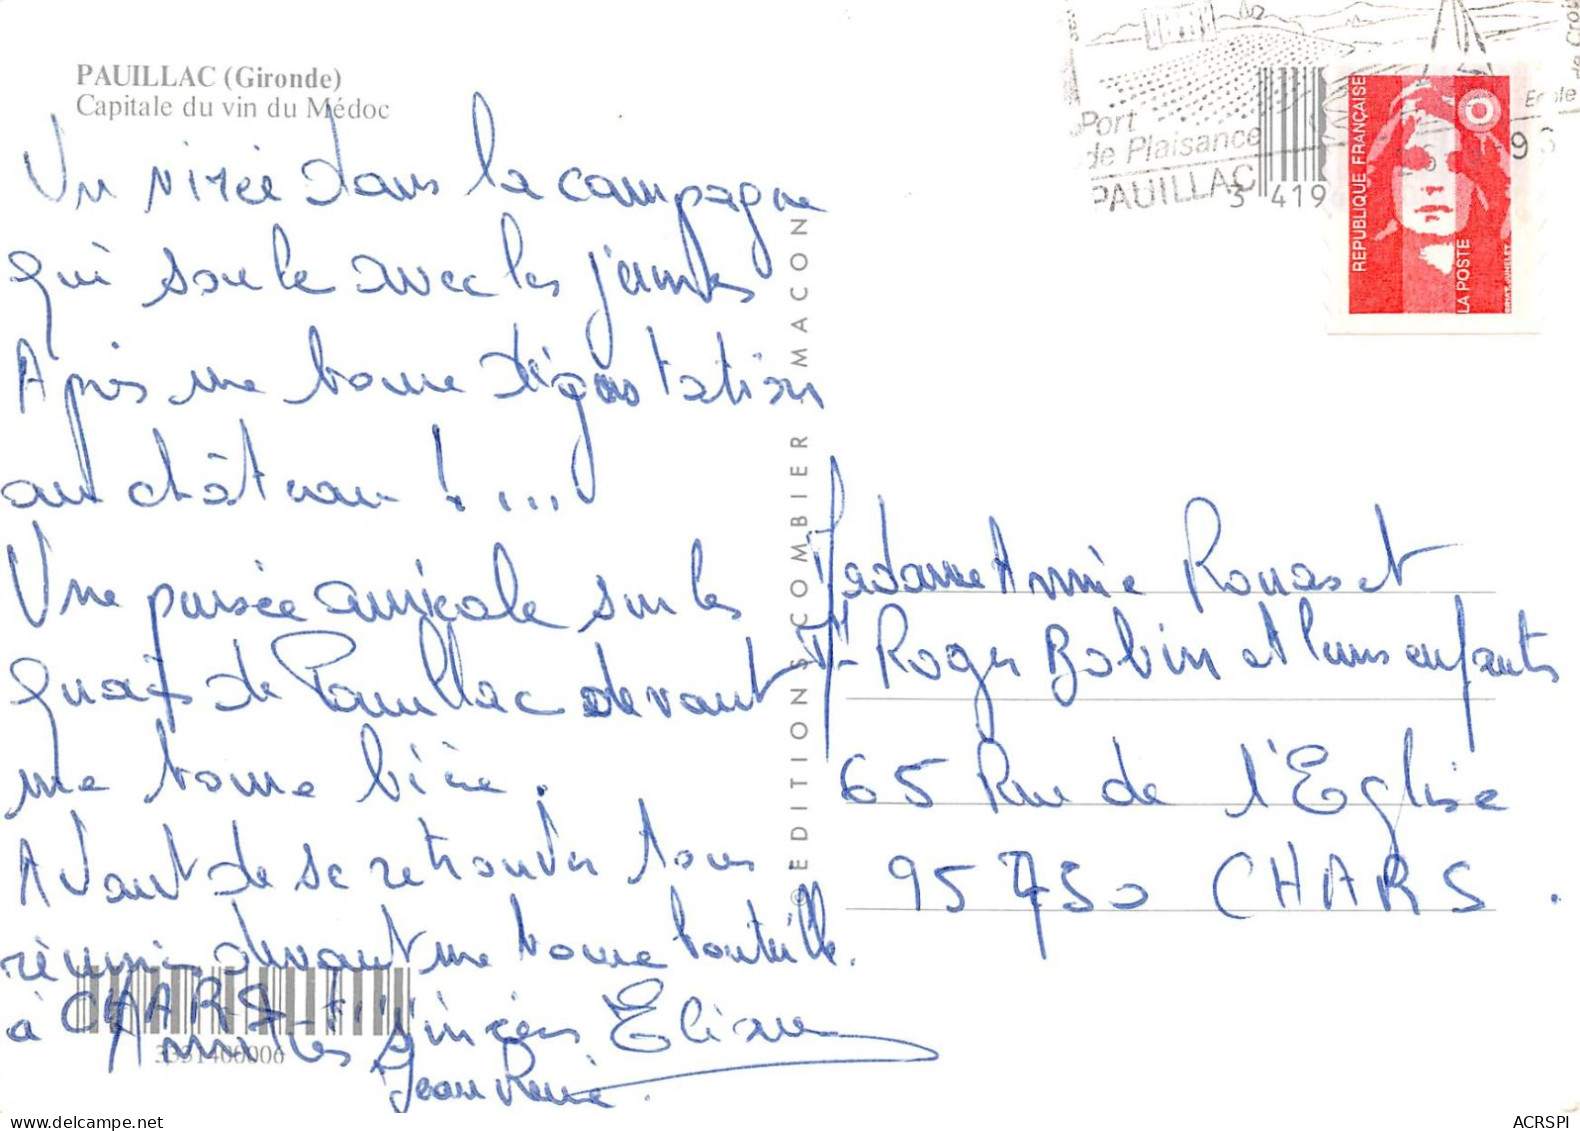 PAUILLAC (Gironde)
Capitale du vin du Médoc
Un virée dans la campagne
qui soule avec les jeunes
Après une bonne dégustation
au château !....
Une pensée amicale sur les
quais de Pauillac devant
une bonne bière.
Avant de se retrouver tous
réunis devant une bonne bouteille.
à CHARS !!!!
Amitiés sincères Eliane
Jean René.
3351400006
© EDITIONS COMBIER - MACON
Port
de Plaisance
PAUILLAC
3 419
REPUBLIQUE FRANÇAISE
LA POSTE
Madame Annie Rouaset
Mr Roger Bobin et leurs enfants
65 Rue de l'Eglise
95750 CHARS.
ACRSPI